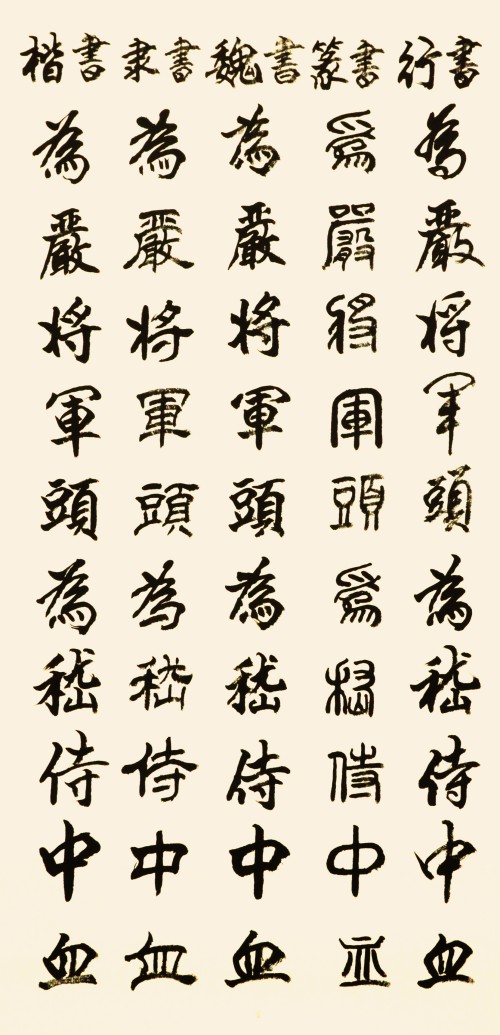 楷書
為嚴将軍頭為嵇侍中血
隶書
為嚴将軍頭為嵇侍中血
魏書
為嚴将軍頭為嵇侍中血
篆書
為嚴将軍頭為嵇侍中血
行書
為嚴将軍頭為嵇侍中血